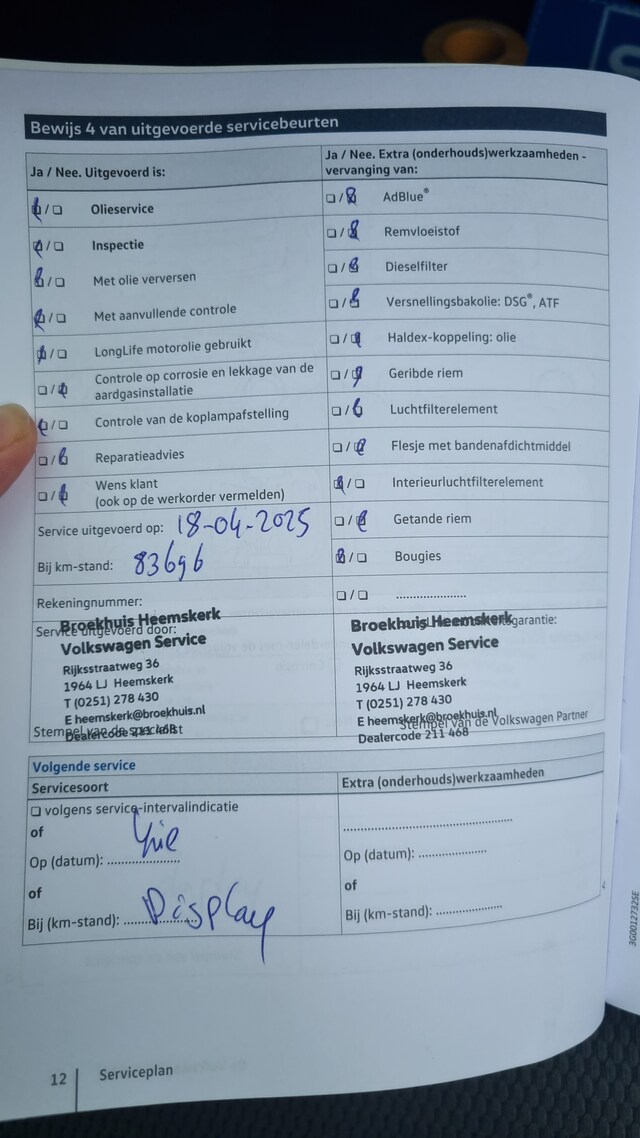 Bewijs 4 van uitgevoerde servicebeurten
Ja / Nee. Uitgevoerd is:
☑ / ☐ Olieservice
☑ / ☐ Inspectie
☑ / ☐ Met olie verversen
☑ / ☐ Met aanvullende controle
☑ / ☐ LongLife motorolie gebruikt
☐ / ☑ Controle op corrosie en lekkage van de
aardgasinstallatie
☑ / ☐ Controle van de koplampafstelling
☐ / ☑ Reparatieadvies
☐ / ☑ Wens klant
(ook op de werkorder vermelden)
Service uitgevoerd op: 18-04-2025
Bij km-stand: 83696
Rekeningnummer:
Service uitgevoerd door:
Broekhuis Heemskerk
Volkswagen Service
Rijksstraatweg 36
1964 LJ Heemskerk
T (0251) 278 430
E heemskerk@broekhuis.nl
Dealercode 211 468
Stempel van de specialist
Ja / Nee. Extra (onderhouds)werkzaamheden -
vervanging van:
☐ / ☑ AdBlue®
☐ / ☑ Remvloeistof
☐ / ☑ Dieselfilter
☐ / ☑ Versnellingsbakolie: DSG®, ATF
☐ / ☑ Haldex-koppeling: olie
☐ / ☑ Geribde riem
☐ / ☑ Luchtfilterelement
☐ / ☑ Flesje met bandenafdichtmiddel
☑ / ☐ Interieurluchtfilterelement
☐ / ☑ Getande riem
☑ / ☐ Bougies
☐ / ☐ ......................
garantie:
Broekhuis Heemskerk
Volkswagen Service
Rijksstraatweg 36
1964 LJ Heemskerk
T (0251) 278 430
E heemskerk@broekhuis.nl
Dealercode 211 468
Stempel van de Volkswagen Partner
Volgende service
Servicesoort
☐ volgens service-intervalindicatie
of
Op (datum): ...................... zie
of
Bij (km-stand): ...................... Display
Extra (onderhouds)werkzaamheden
..................................................
Op (datum): ....................
of
Bij (km-stand): ....................
12 Serviceplan
3G0012732SE